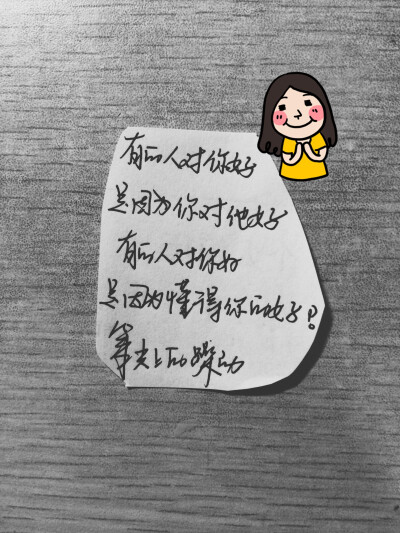 有的人对你好
是因为你对他好
有的人对你好
是因为懂得你的好?
笔尖上的躁动